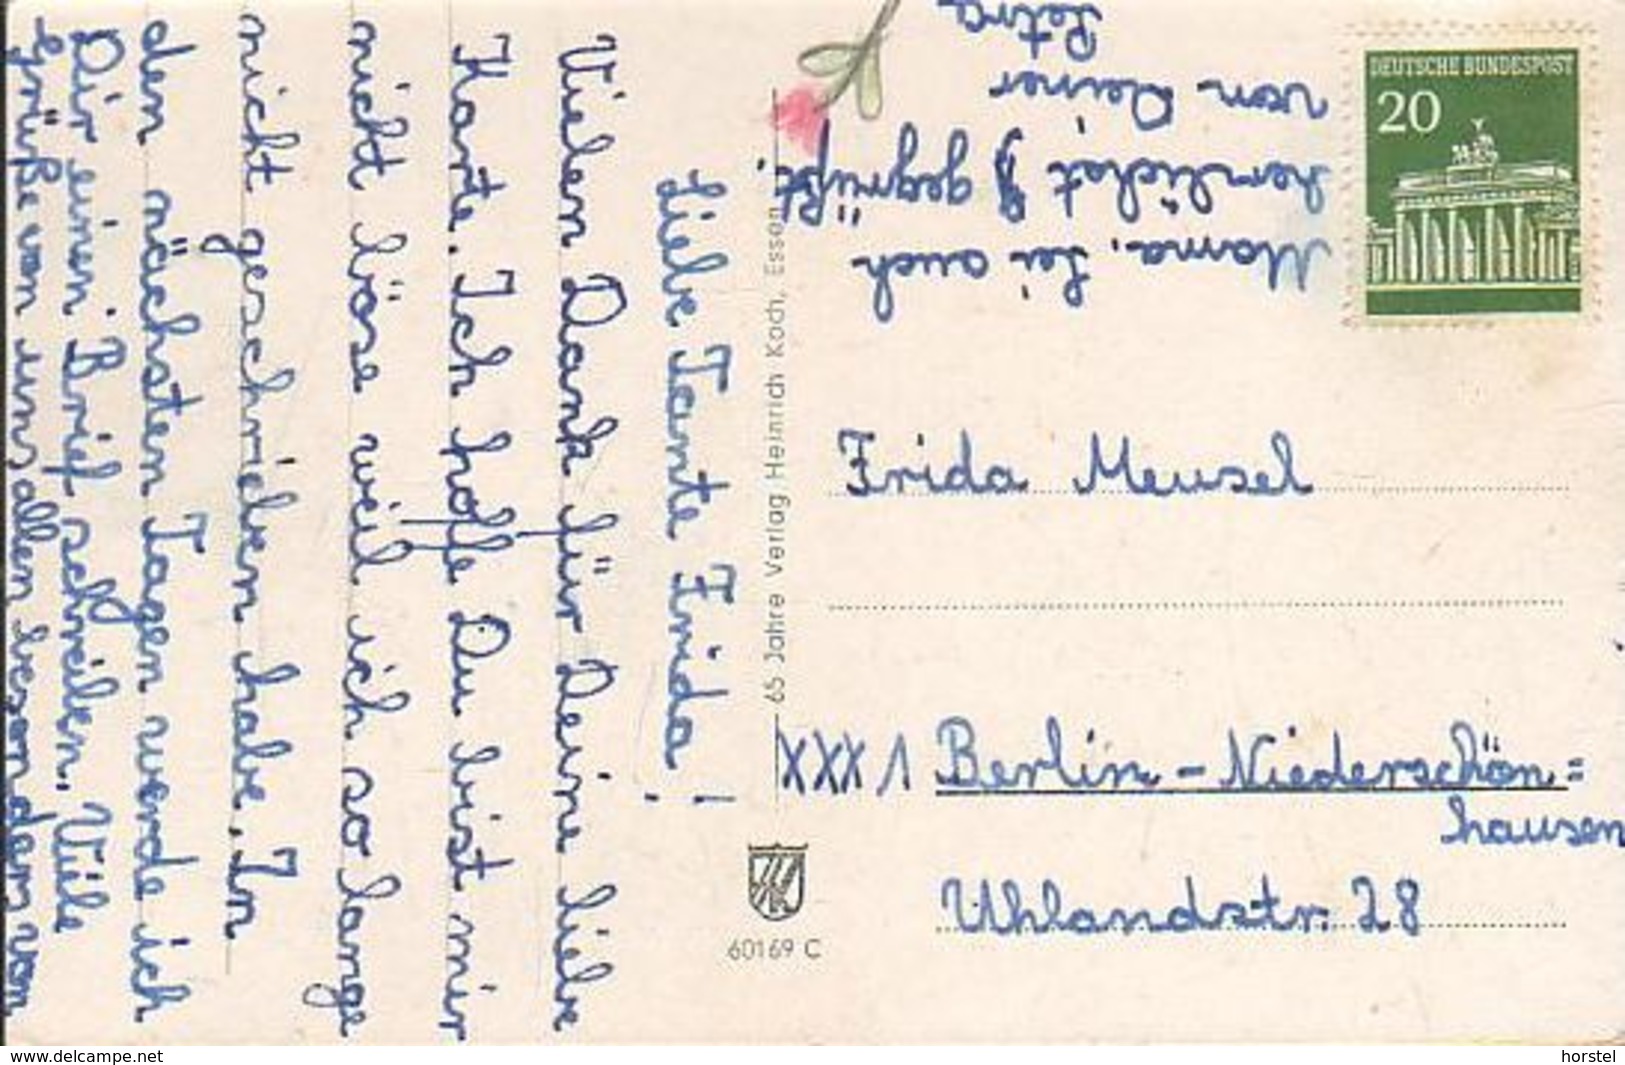 Liebe Tante Frida!
Vielen Dank für Deine liebe
Karte. Ich hoffe Du bist mir
nicht böse weil ich so lange
nicht geschrieben habe. In
den nächsten Tagen werde ich
Dir einen Brief schreiben. Viele
Grüße von uns allen besonders von
Mama. Sei auch
herzlichst gegrüßt.
von Deiner
Petra
65 Jahre Verlag Heinrich Koch, Essen
60169 C
DEUTSCHE BUNDESPOST
20
Frida Meusel
XXX 1 Berlin - Niederschön=
hausen
Uhlandstr. 28
www.delcampe.net
horstel